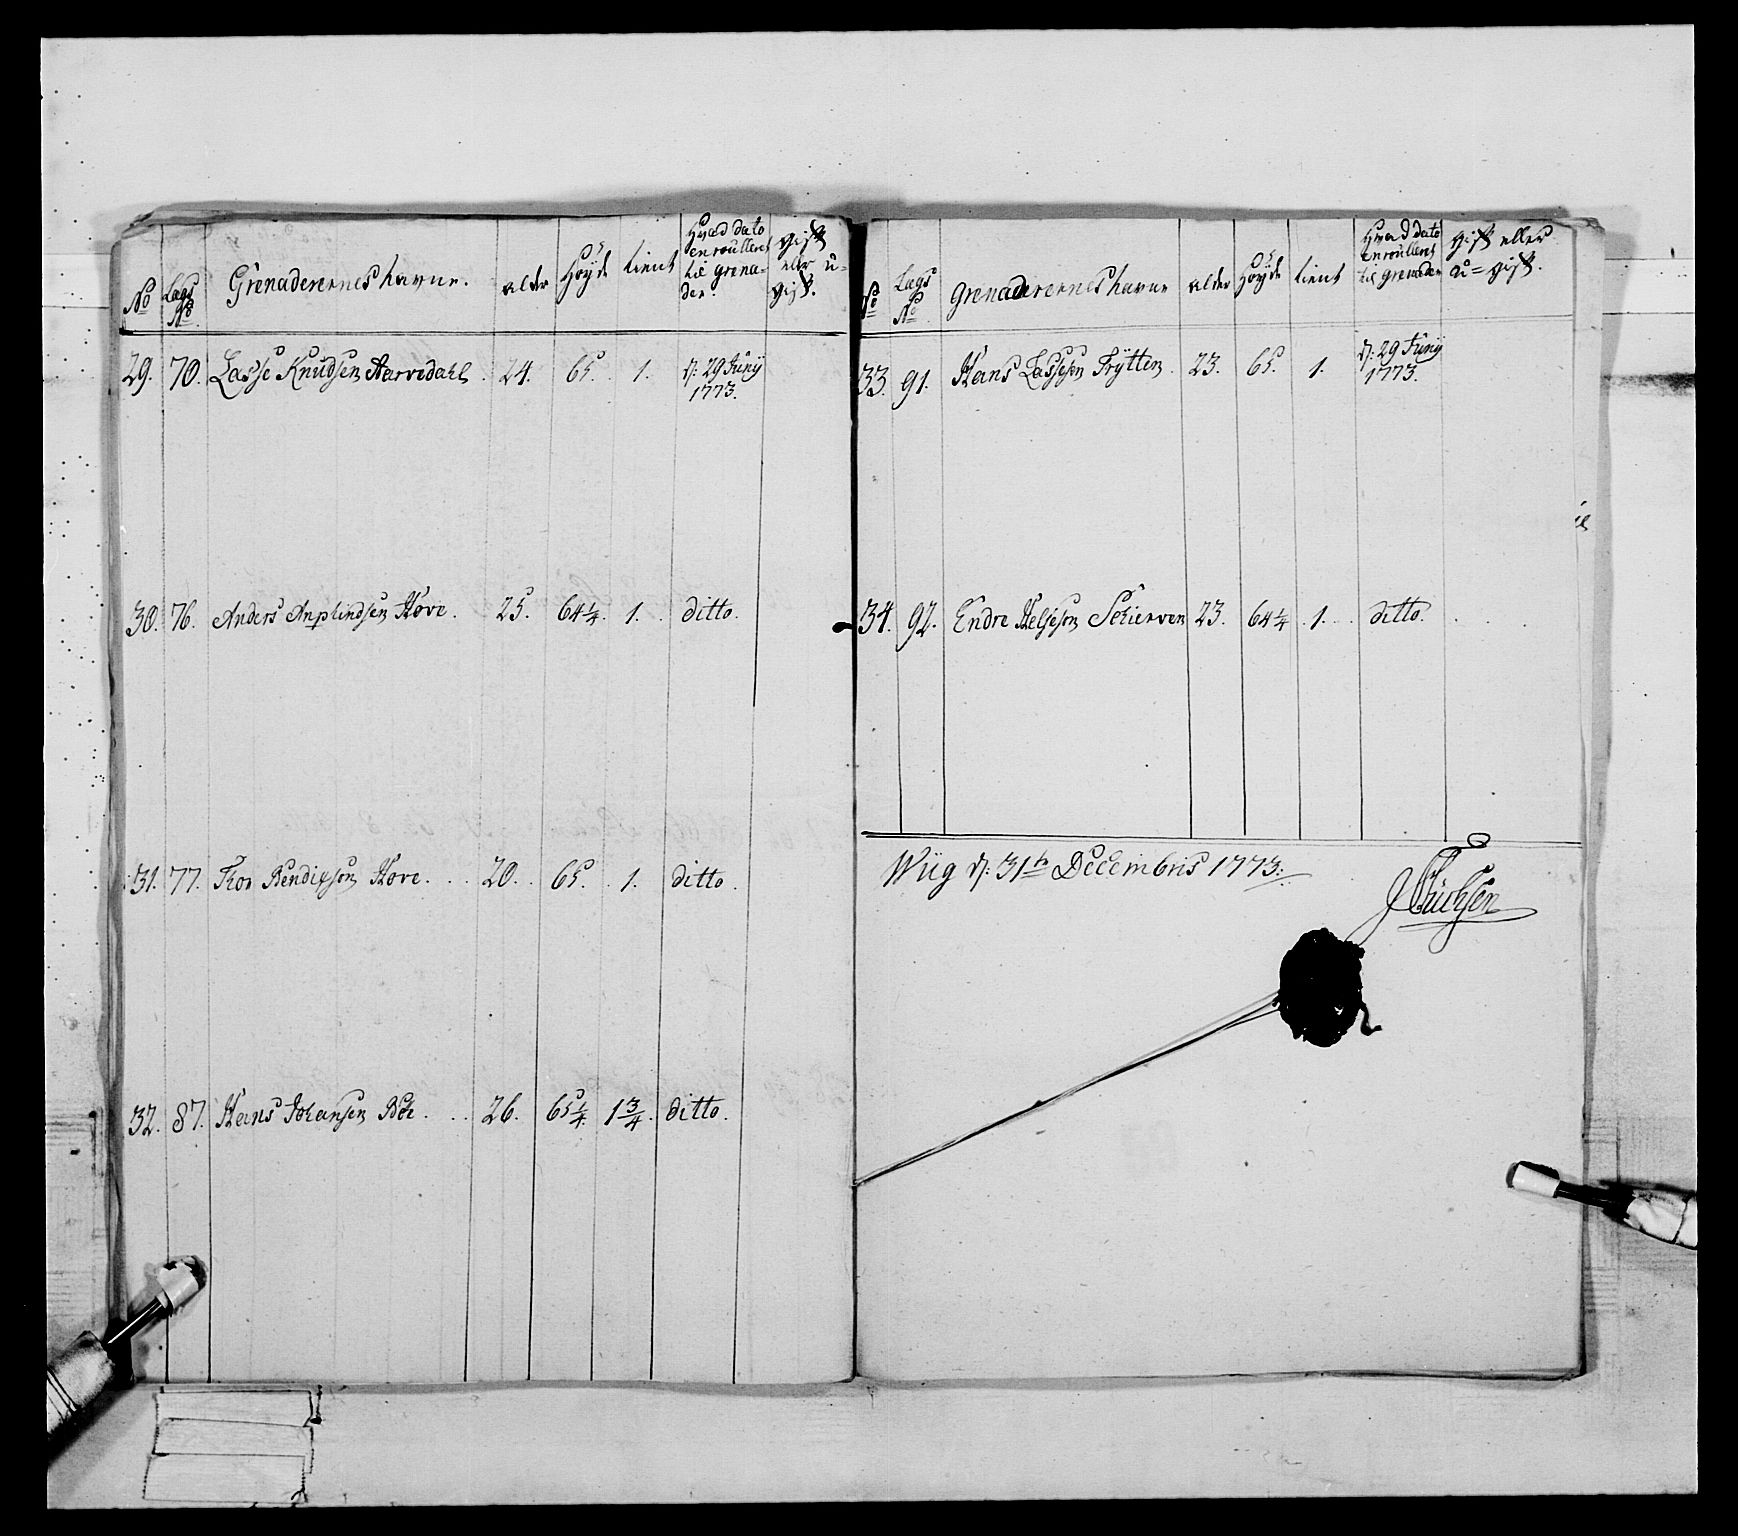 No | Lægs No | Grenaderernes havne. | alder | Höyde | tient | Hvad dato enroulleret til grenader. | gift eller u= gift.
29. | 70. | Lasse Knudsen Aarredahl. | 24. | 65. | 1. | d: 29 Juny 1773.
30. | 76. | Anders Amplindsen Hove. | 25. | 64 1/4. | 1. | ditto.
31. | 77. | Thor Bendixson Hove. | 20. | 65. | 1. | ditto.
32. | 87. | Hans Johansen Böe. | 26. | 65 1/4. | 1 3/4. | ditto.
No | Lægs No | Grenaderernes havne | alder | Höyde | tient | Hvad dato enroulleret til grenader | gift eller u= gift.
33. | 91. | Hans Lassesen Trytten. | 23. | 65. | 1. | d: 29 Juny 1773.
34. | 92. | Endre Helgesen Schierven | 23. | 64 1/4. | 1. | ditto.
Wiig d: 31te Decembris 1773.